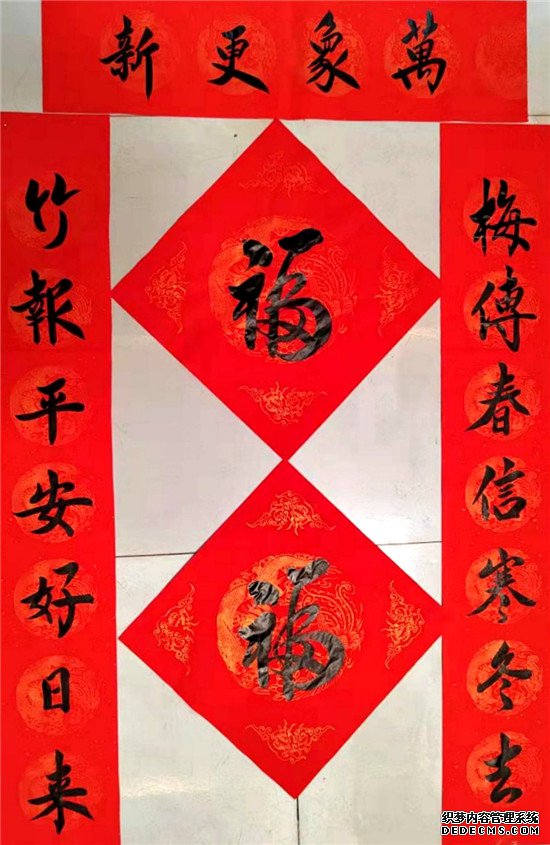 新更象萬
梅傳春信寒冬去
竹報平安好日来
福
福
织梦内容管理系统
DEDECMS.COM